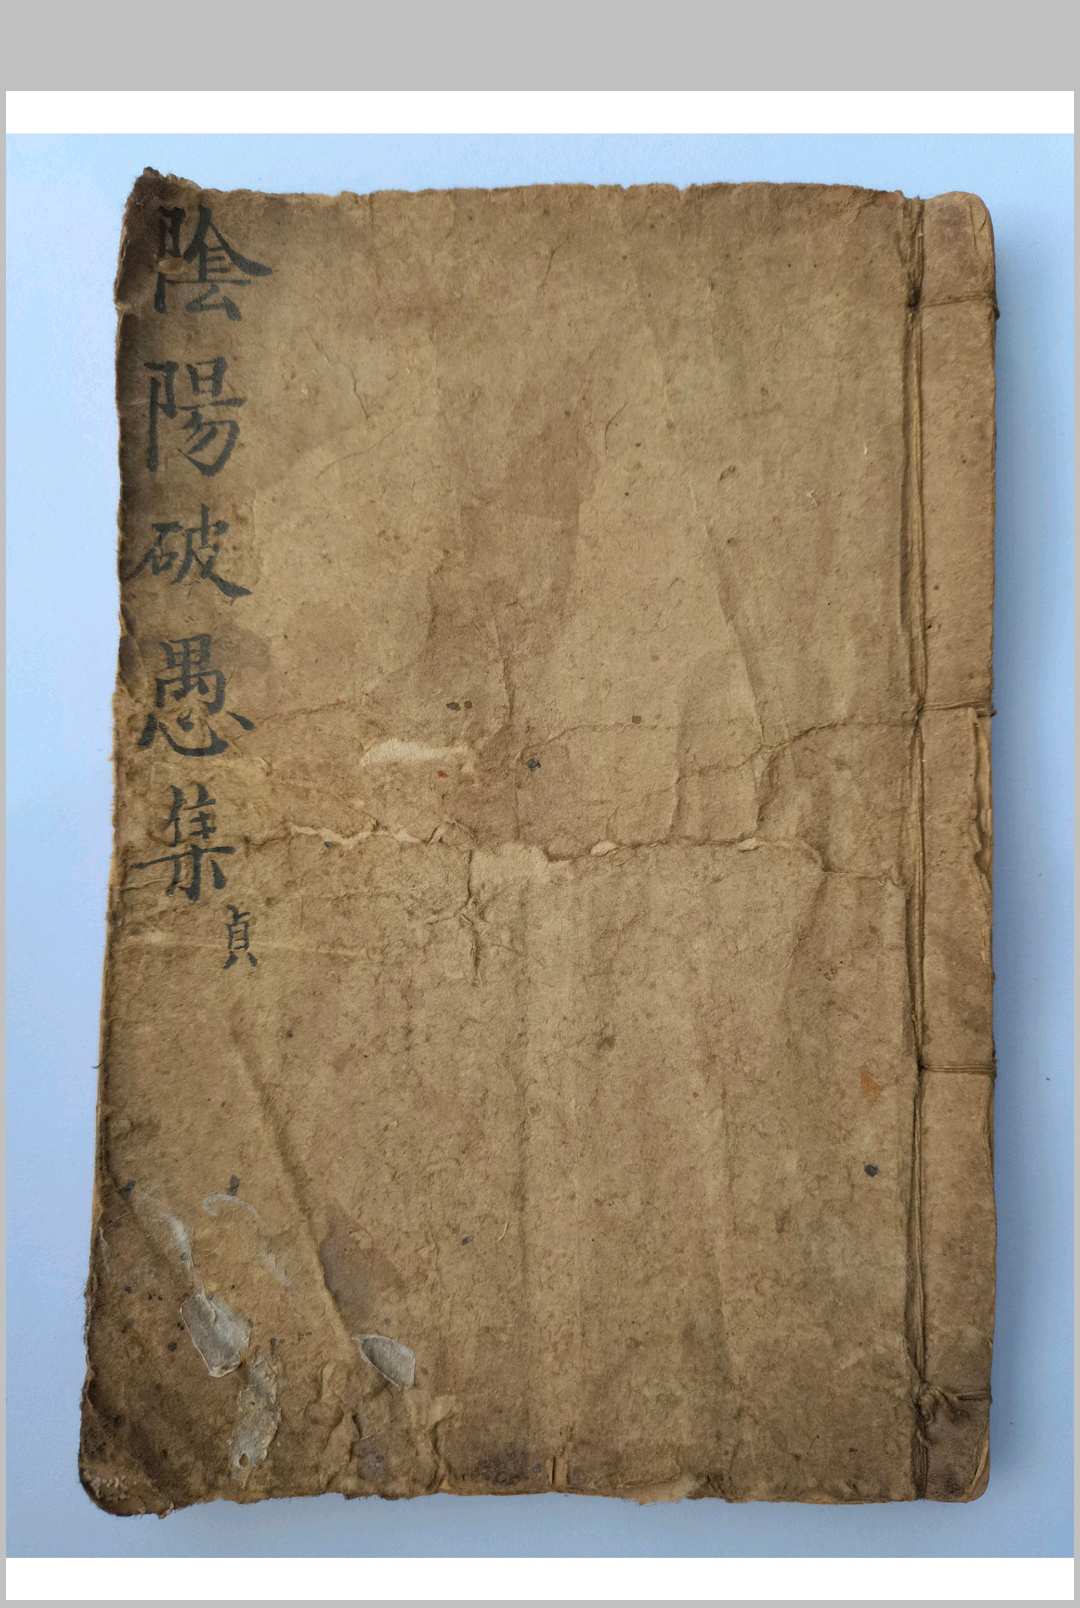 陰陽破愚集
貞